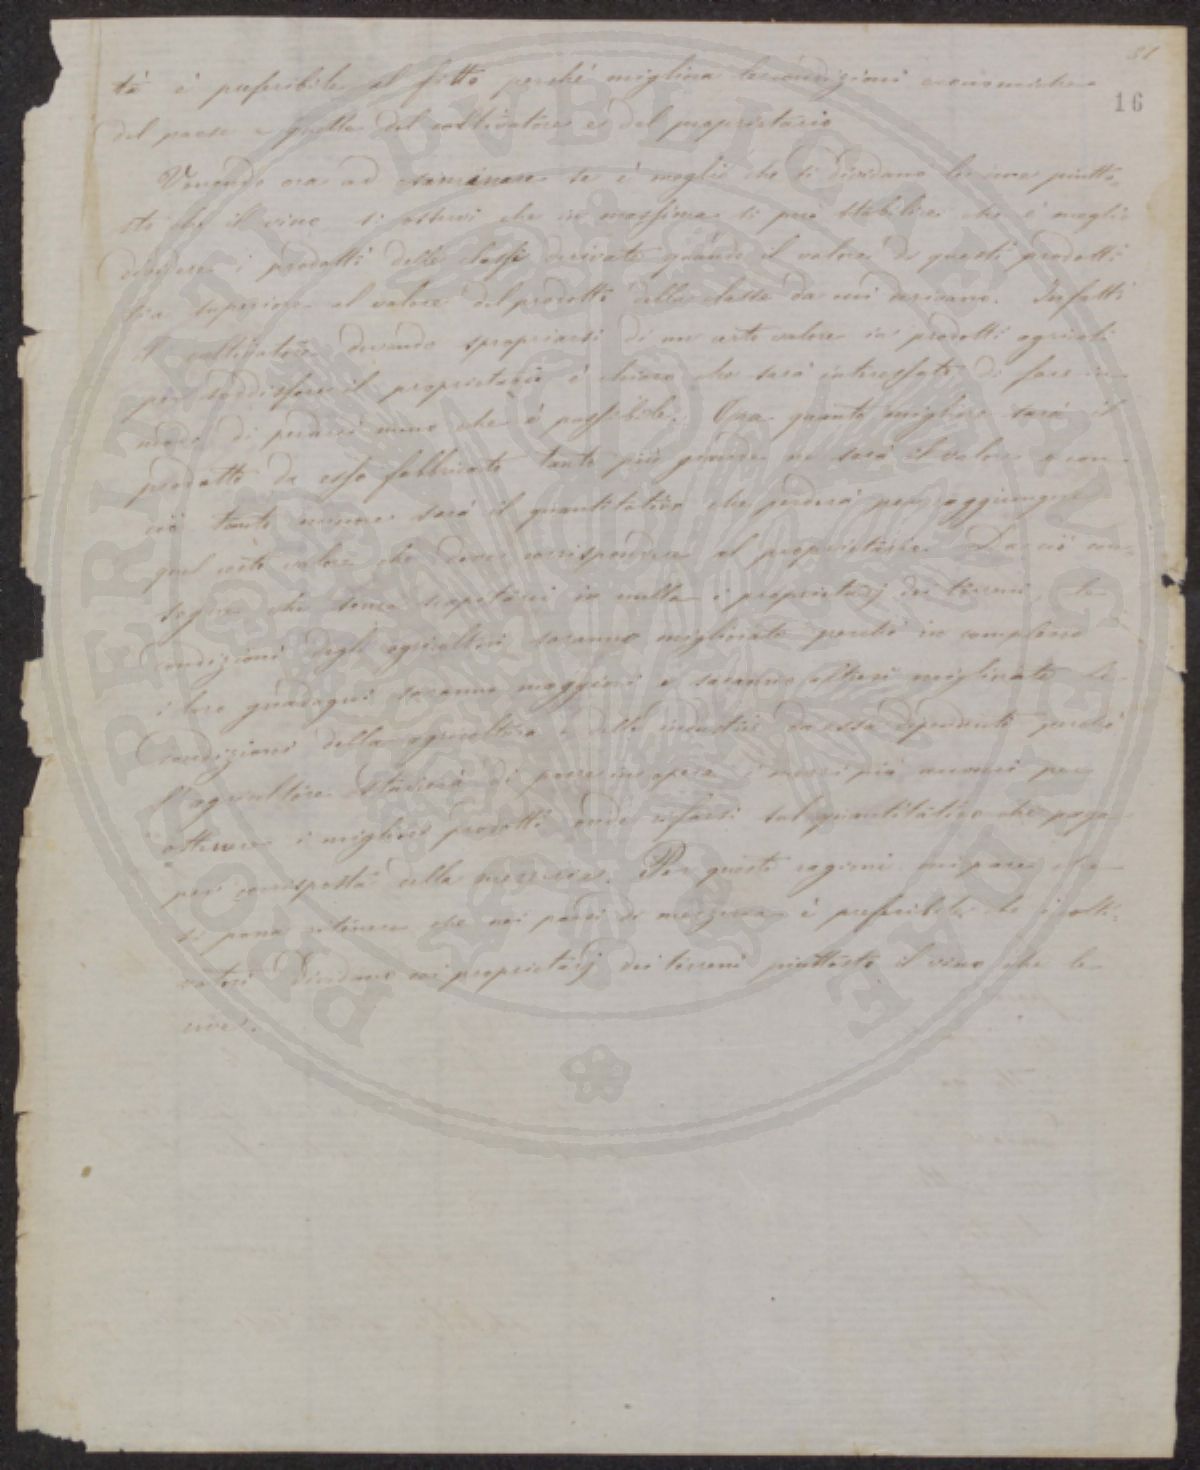 81
16
tà è preferibile al fitto perché migliora le condizioni economiche
del paese e quelle del coltivatore e del proprietario
Venendo ora ad esaminare se è meglio che si dividano le uve piutto-
sto che il vino si osservi che in massima si può stabilire che è meglio
dividere i prodotti delle classi derivate quando il valore di questi prodotti
sia superiore al valore del prodotto della classe da cui derivano. Infatti
il coltivatore dovendo spropriarsi di un certo valore in prodotti agricoli
per soddisfare il proprietario è chiaro che sarà interessato di fare in
modo di perderci meno che è possibile. Ora quanto migliore sarà il
prodotto da esso fabbricato tanto più grande ne sarà il valore e con
ciò tanto minore sarà il quantitativo che perderà per raggiungere
quel certo valore che deve corrispondere al proprietario. Da ciò con-
segue che senza scapitarci in nulla i proprietarj dei terreni, le
condizioni degli agricoltori saranno migliorate perché in complesso
i loro guadagni saranno maggiori e saranno altresì migliorate le
condizioni della agricoltura e delle industrie da essa dipendenti perché
l'agricoltore studierà di porre in opera i mezzi più economici per
ottenere i migliori prodotti onde rifarsi sul quantitativo che paga
per corrisposta della mezzeria. Per queste ragioni mi pare che
si possa ritenere che nei paesi di mezzeria è preferibile che i colti-
vatori dividano coi proprietarj dei terreni piuttosto il vino che le
uve.
PROPERTIAS PVBLICA